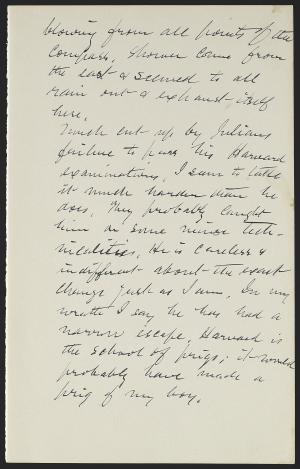 blowing from all points of the
compass. Shower came from
the east & seemed to all
rain out & exhaust itself
here.
Much cut up by Julians
failure to pass his Harvard
examinations. I seem to take
it much harder than he
does. They probably caught
him on some minor tech-
nicalities. He is careless &
indifferent about the exact
thing just as I am. In my
wrath I say he has had a
narrow escape. Harvard is
the school of prigs; it would
probably have made a
prig of my boy.